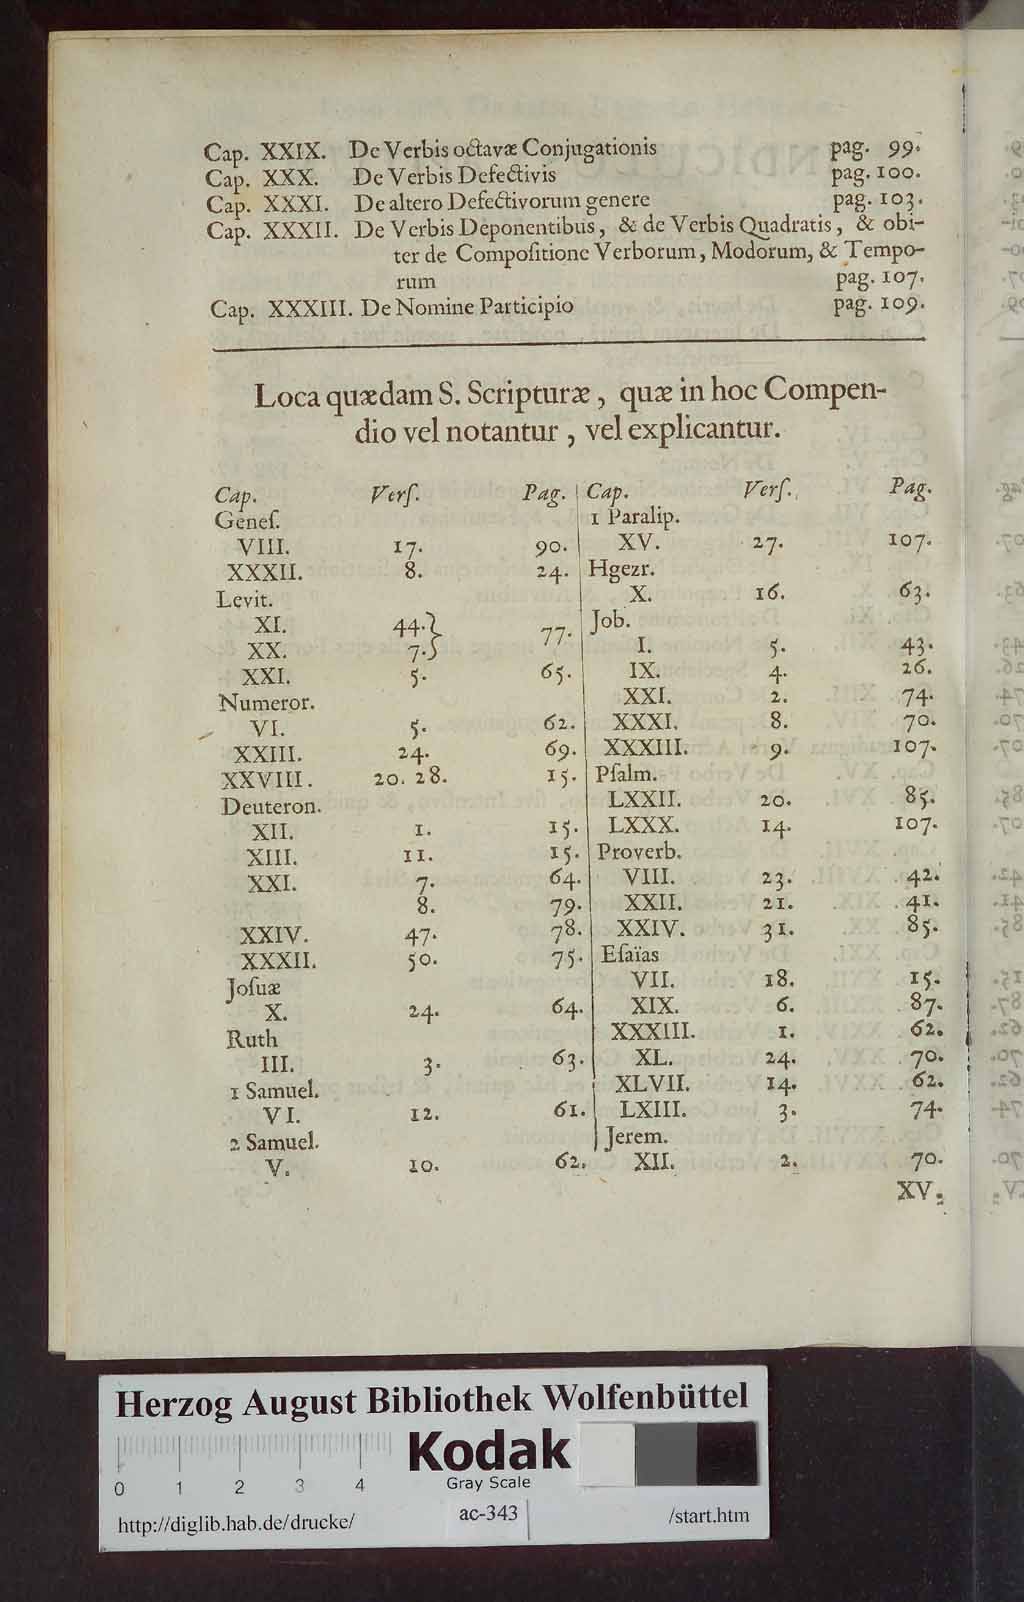 Cap. XXIX. De Verbis octavæ Conjugationis pag. 99.
Cap. XXX. De Verbis Defectivis pag. 100.
Cap. XXXI. De altero Defectivorum genere pag. 103.
Cap. XXXII. De Verbis Deponentibus, & de Verbis Quadratis, & obi-
ter de Compoſitione Verborum, Modorum, & Tempo-
rum pag. 107.
Cap. XXXIII. De Nomine Participio pag. 109.
Loca quædam S. Scripturæ, quæ in hoc Compen-
dio vel notantur, vel explicantur.
Cap. Verſ. Pag.
Geneſ.
VIII. 17. 90.
XXXII. 8. 24.
Levit.
XI. 44.
XX. 7. } 77.
XXI. 5. 65.
Numeror.
VI. 5. 62.
XXIII. 24. 69.
XXVIII. 20. 28. 15.
Deuteron.
XII. 1. 15.
XIII. 11. 15.
XXI. 7. 64.
8. 79.
XXIV. 47. 78.
XXXII. 50. 75.
Joſuæ
X. 24. 64.
Ruth
III. 3. 63.
1 Samuel.
VI. 12. 61.
2 Samuel.
V. 10. 62.
Cap. Verſ. Pag.
1 Paralip.
XV. 27. 107.
Hgezr.
X. 16. 63.
Job.
I. 5. 43.
IX. 4. 26.
XXI. 2. 74.
XXXI. 8. 70.
XXXIII. 9. 107.
Pſalm.
LXXII. 20. 85.
LXXX. 14. 107.
Proverb.
VIII. 23. 42.
XXII. 21. 41.
XXIV. 31. 85.
Eſaïas
VII. 18. 15.
XIX. 6. 87.
XXXIII. 1. 62.
XL. 24. 70.
XLVII. 14. 62.
LXIII. 3. 74.
Jerem.
XII. 2. 70.
XV.
Herzog August Bibliothek Wolfenbüttel
Kodak
Gray Scale
0 1 2 3 4
http://diglib.hab.de/drucke/ ac-343 /start.htm